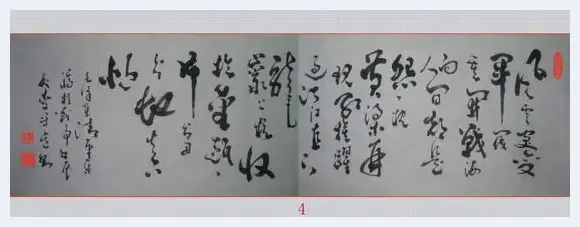 风云突变
軍阀
重开戰洒
向人间都是
怨一枕
黄粱再
现红旗躍
过汀江直下
龙
岩上杭收
拾金瓯一
片分田
分地真
忙
毛泽东清平乐
4